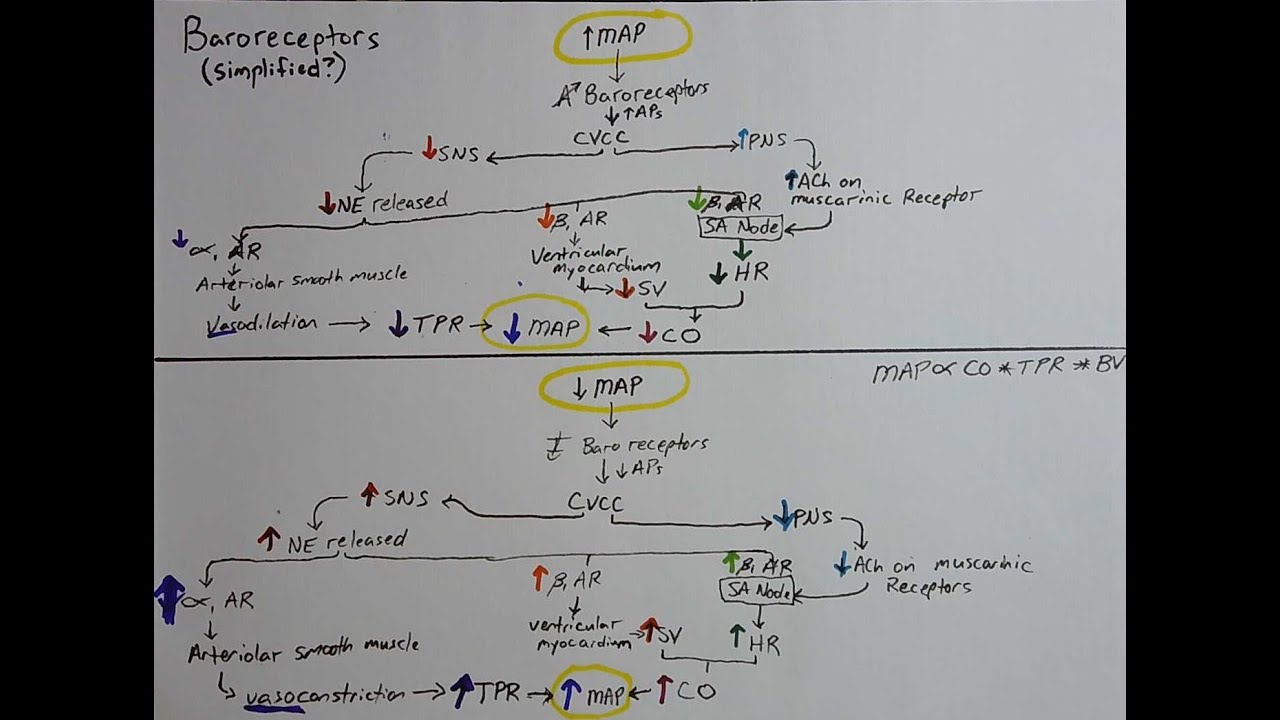 Baroreceptors
(simplified?)
↑MAP
Baroreceptors
↓ ↑APs
CVCC
↓SNS
↑PNS
↓NE released
↑ACh on
muscarinic Receptor
↓α, AR
↓β, AR
↓β, AR
SA Node
Arteriolar smooth muscle
Ventricular
myocardium
↓HR
↓SV
Vasodilation → ↓TPR → ↓MAP ← ↓CO
MAP∝CO*TPR*BV
↓MAP
Baroreceptors
↓ ↓APs
CVCC
↑SNS
↓PNS
↑NE released
↓ACh on muscarinic
Receptors
↑α, AR
↑β, AR
↑β, AR
SA Node
Arteriolar smooth muscle
ventricular
myocardium → ↑SV
↑HR
vasoconstriction → ↑TPR → ↑MAP ← ↑CO